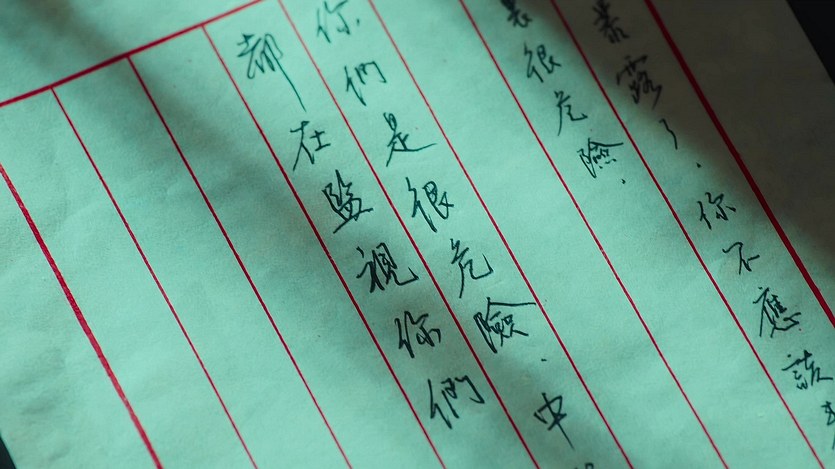 暴露了.你不應該
裏很危險.
你們是很危險.中
都在監視你們